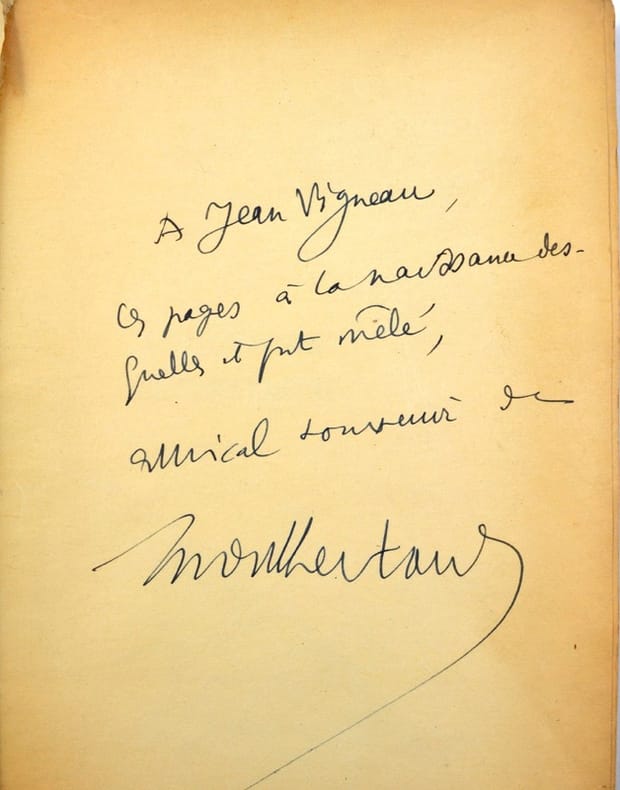 A Jean Vigneau,
Ces pages à la naissance des-
quelles il fut mêlé,
amical souvenir de
Montherlant